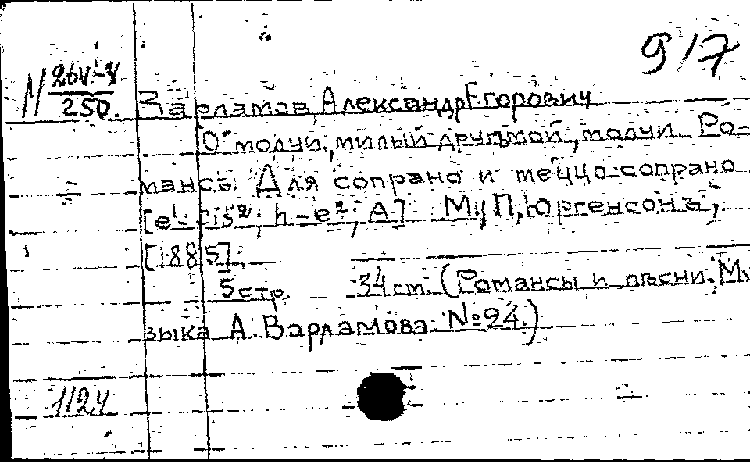 917
М 26V-4
250
Варламов, Александр Егорович
О молчи, милый друг мой, молчи. Ро-
мансъ. Для сопрано и меццо-сопрано
[e¹- fis²; h-e²; A] М, П, Юргенсонъ,
[1885],
5 стр. 34 см. (Романсы и пѣсни. Му
зыка А. Варламова. № 94.)
1124